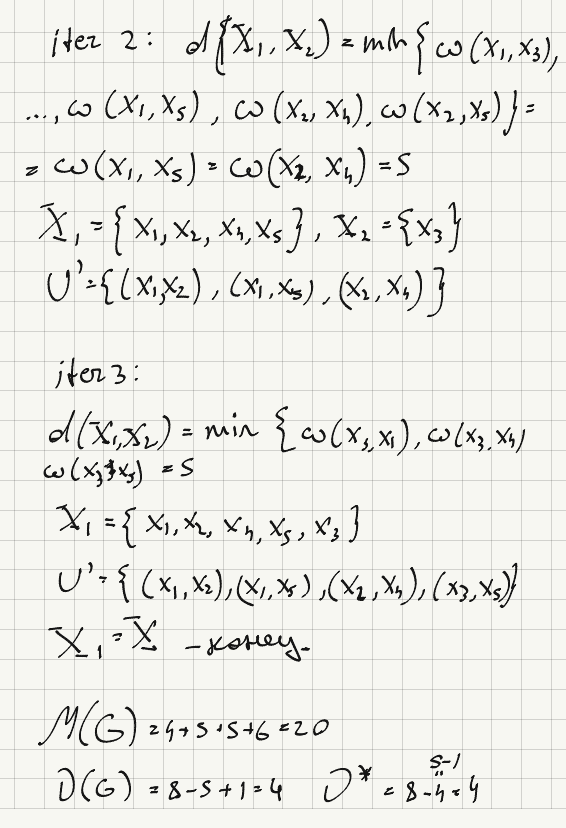 iter 2: d(X₁, X₂) = min { ω(x₁, x₃),
..., ω(x₁, x₅), ω(x₂, x₄), ω(x₂, x₅)} =
= ω(x₁, x₅) = ω(x₂, x₄) = 5
X₁ = {x₁, x₂, x₄, x₅}, X₂ = {x₃}
U' = {(x₁, x₂), (x₁, x₅), (x₂, x₄)}
iter 3:
d(X₁, X₂) = min {ω(x₃, x₁), ω(x₃, x₄)
ω(x₃, x₅) = 5
X₁ = {x₁, x₂, x₄, x₅, x₃}
U' = {(x₁, x₂), (x₁, x₅), (x₂, x₄), (x₃, x₅)}
X₁ = X - конец.
M(G) = 4 + 5 + 5 + 6 = 20
5-1
D(G) = 8 - 5 + 1 = 4 D* = 8 - 4 = 4